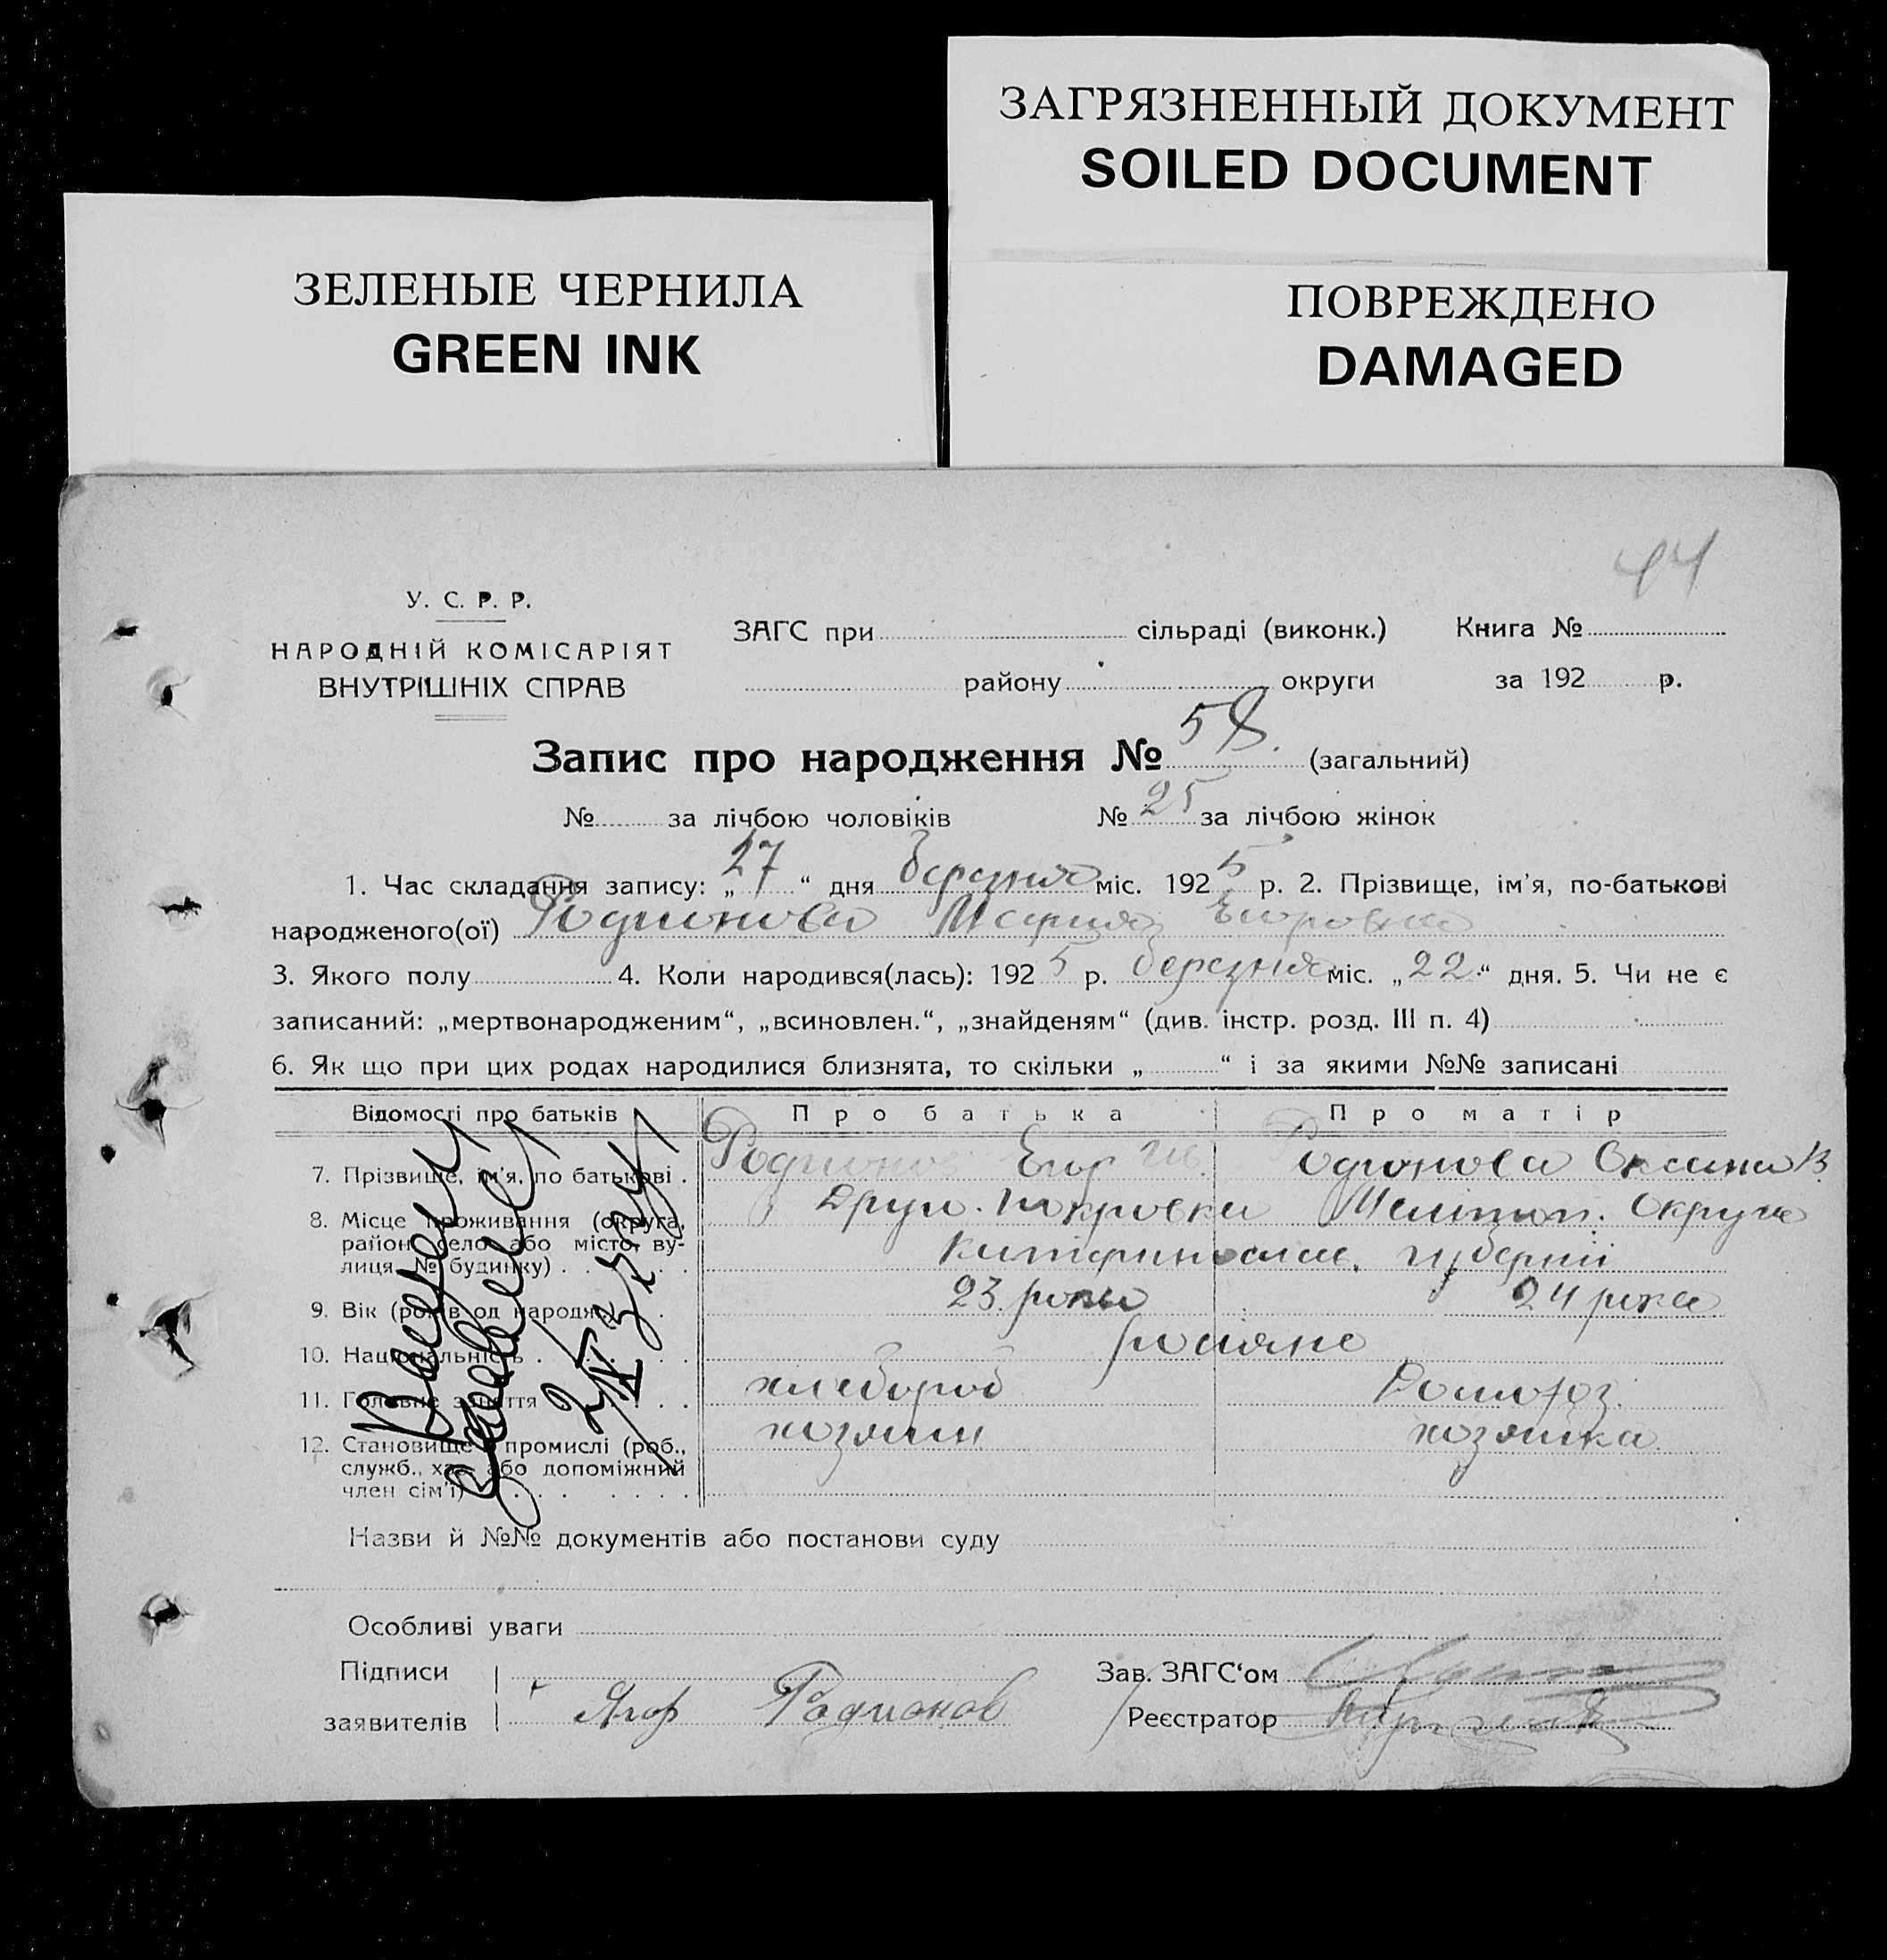 ЗАГРЯЗНЕННЫЙ ДОКУМЕНТ
SOILED DOCUMENT
ЗЕЛЕНЫЕ ЧЕРНИЛА
GREEN INK
ПОВРЕЖДЕНО
DAMAGED
44
У. С. Р. Р.
НАРОДНІЙ КОМІСАРІЯТ
ВНУТРІШНІХ СПРАВ
ЗАГС при сільраді (виконк.) Книга №
району округи за 192 р.
Запис про народження № 58. (загальний)
№ за лічбою чоловіків № 25 за лічбою жінок
1. Час складання запису: „27“ дня березня міс. 1925 р. 2. Прізвище, ім'я, по-батькові
народженого(ої) Родионова Мария Егоровна
3. Якого полу 4. Коли народився(лась): 1925 р. березня міс. „22“ дня. 5. Чи не є
записаний: „мертвонародженим“, „всиновлен.“, „знайденям“ (див. інстр. розд. III п. 4)
6. Як що при цих родах народилися близнята, то скільки „ “ і за якими №№ записані
Відомості про батьків Про батька Про матір
7. Прізвище, ім'я, по батькові . Родионов Егор Родионова Оксана В
8. Місце проживання (округа, район, село або місто, вулиця, № будинку) . Покровка Мелітоп. Округа
губернії
9. Вік (років од народж.) 23 роки 24 роки
10. Національність . росіяне
11. Головне заняття хлебороб Домохоз.
12. Становище в промислі (роб., служб., хаз. або допоміжний член сім'ї) хозяин хозяйка
Назви й №№ документів або постанови суду
Особливі уваги
Підписи
заявителів Ягор Родионов
Зав. ЗАГС‘ом
Реєстратор